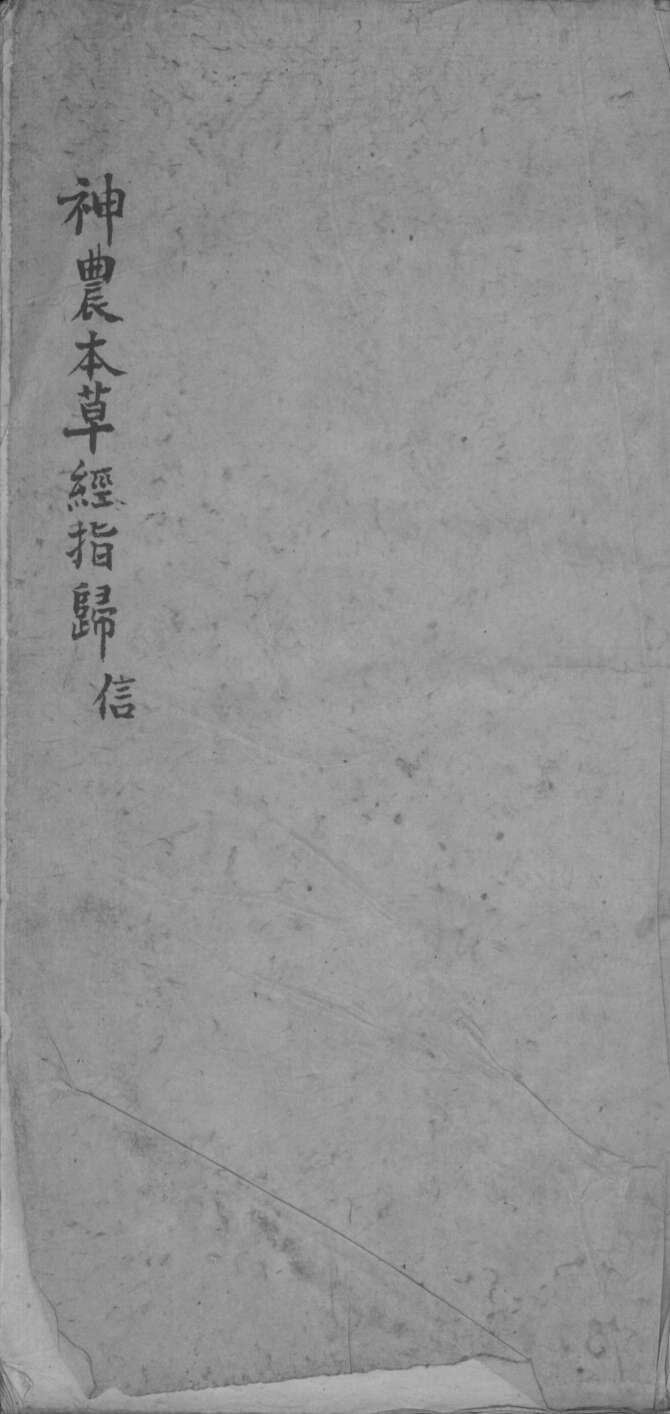 神農本草經指歸 信